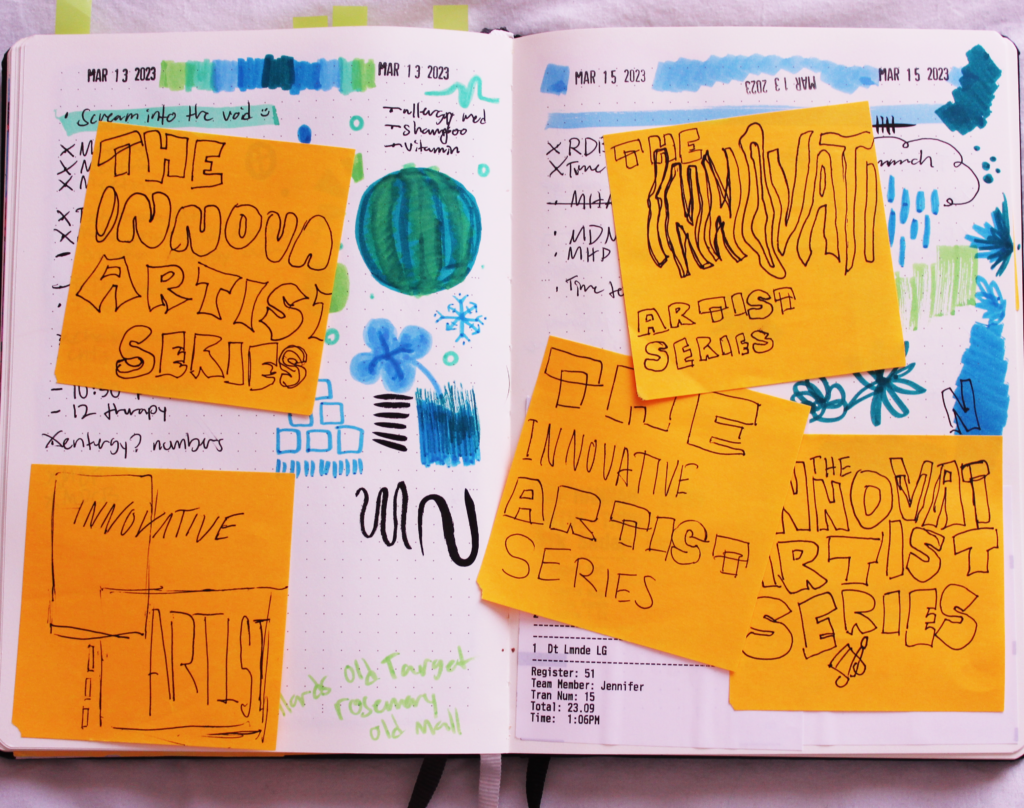 MAR 13 2023 MAR 13 2023
Scream into the void
allergy med
shampoo
vitamin
THE
INNOVA
ARTIST
SERIES
- 12 therapy
numbers
INNOVATIVE
ARTIST
Old Target
rosemary
Old Mall
MAR 15 2023 MAR 13 2023 MAR 15 2023
THE
INNOVATI
ARTIST
SERIES
MDN
MHD
Time
THE
INNOVATIVE
ARTIST
SERIES
N
THE
INNOVATI
ARTIST
SERIES
1 Dt Lmnde LG
Register: 51
Team Member: Jennifer
Tran Num: 15
Total: 23.09
Time: 1:06PM